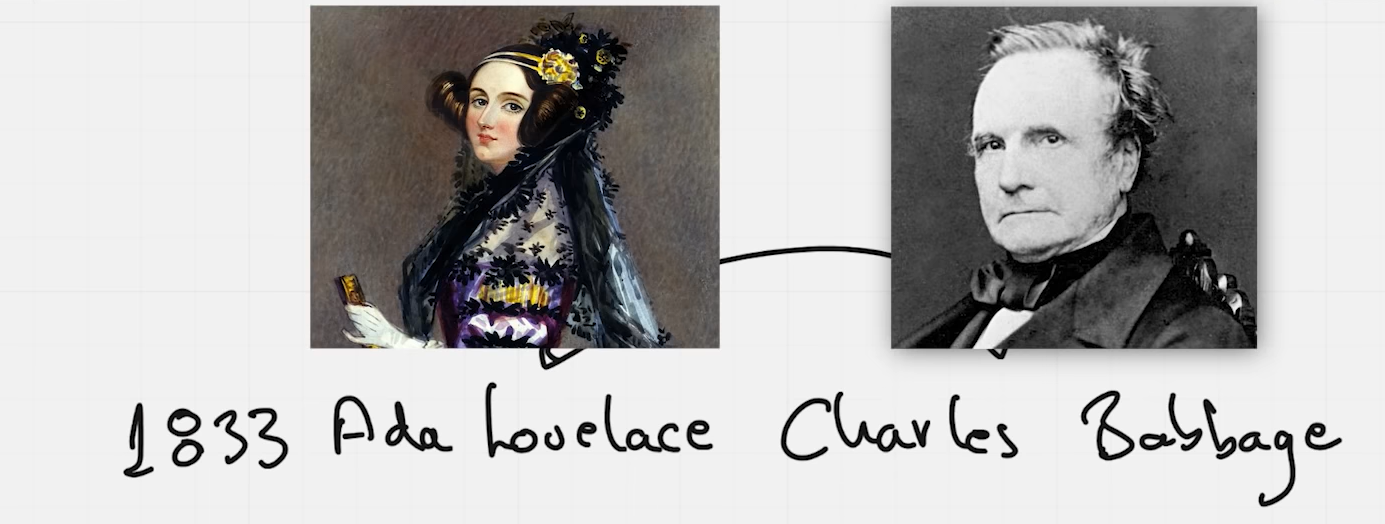 1833 Ada Lovelace Charles Babbage